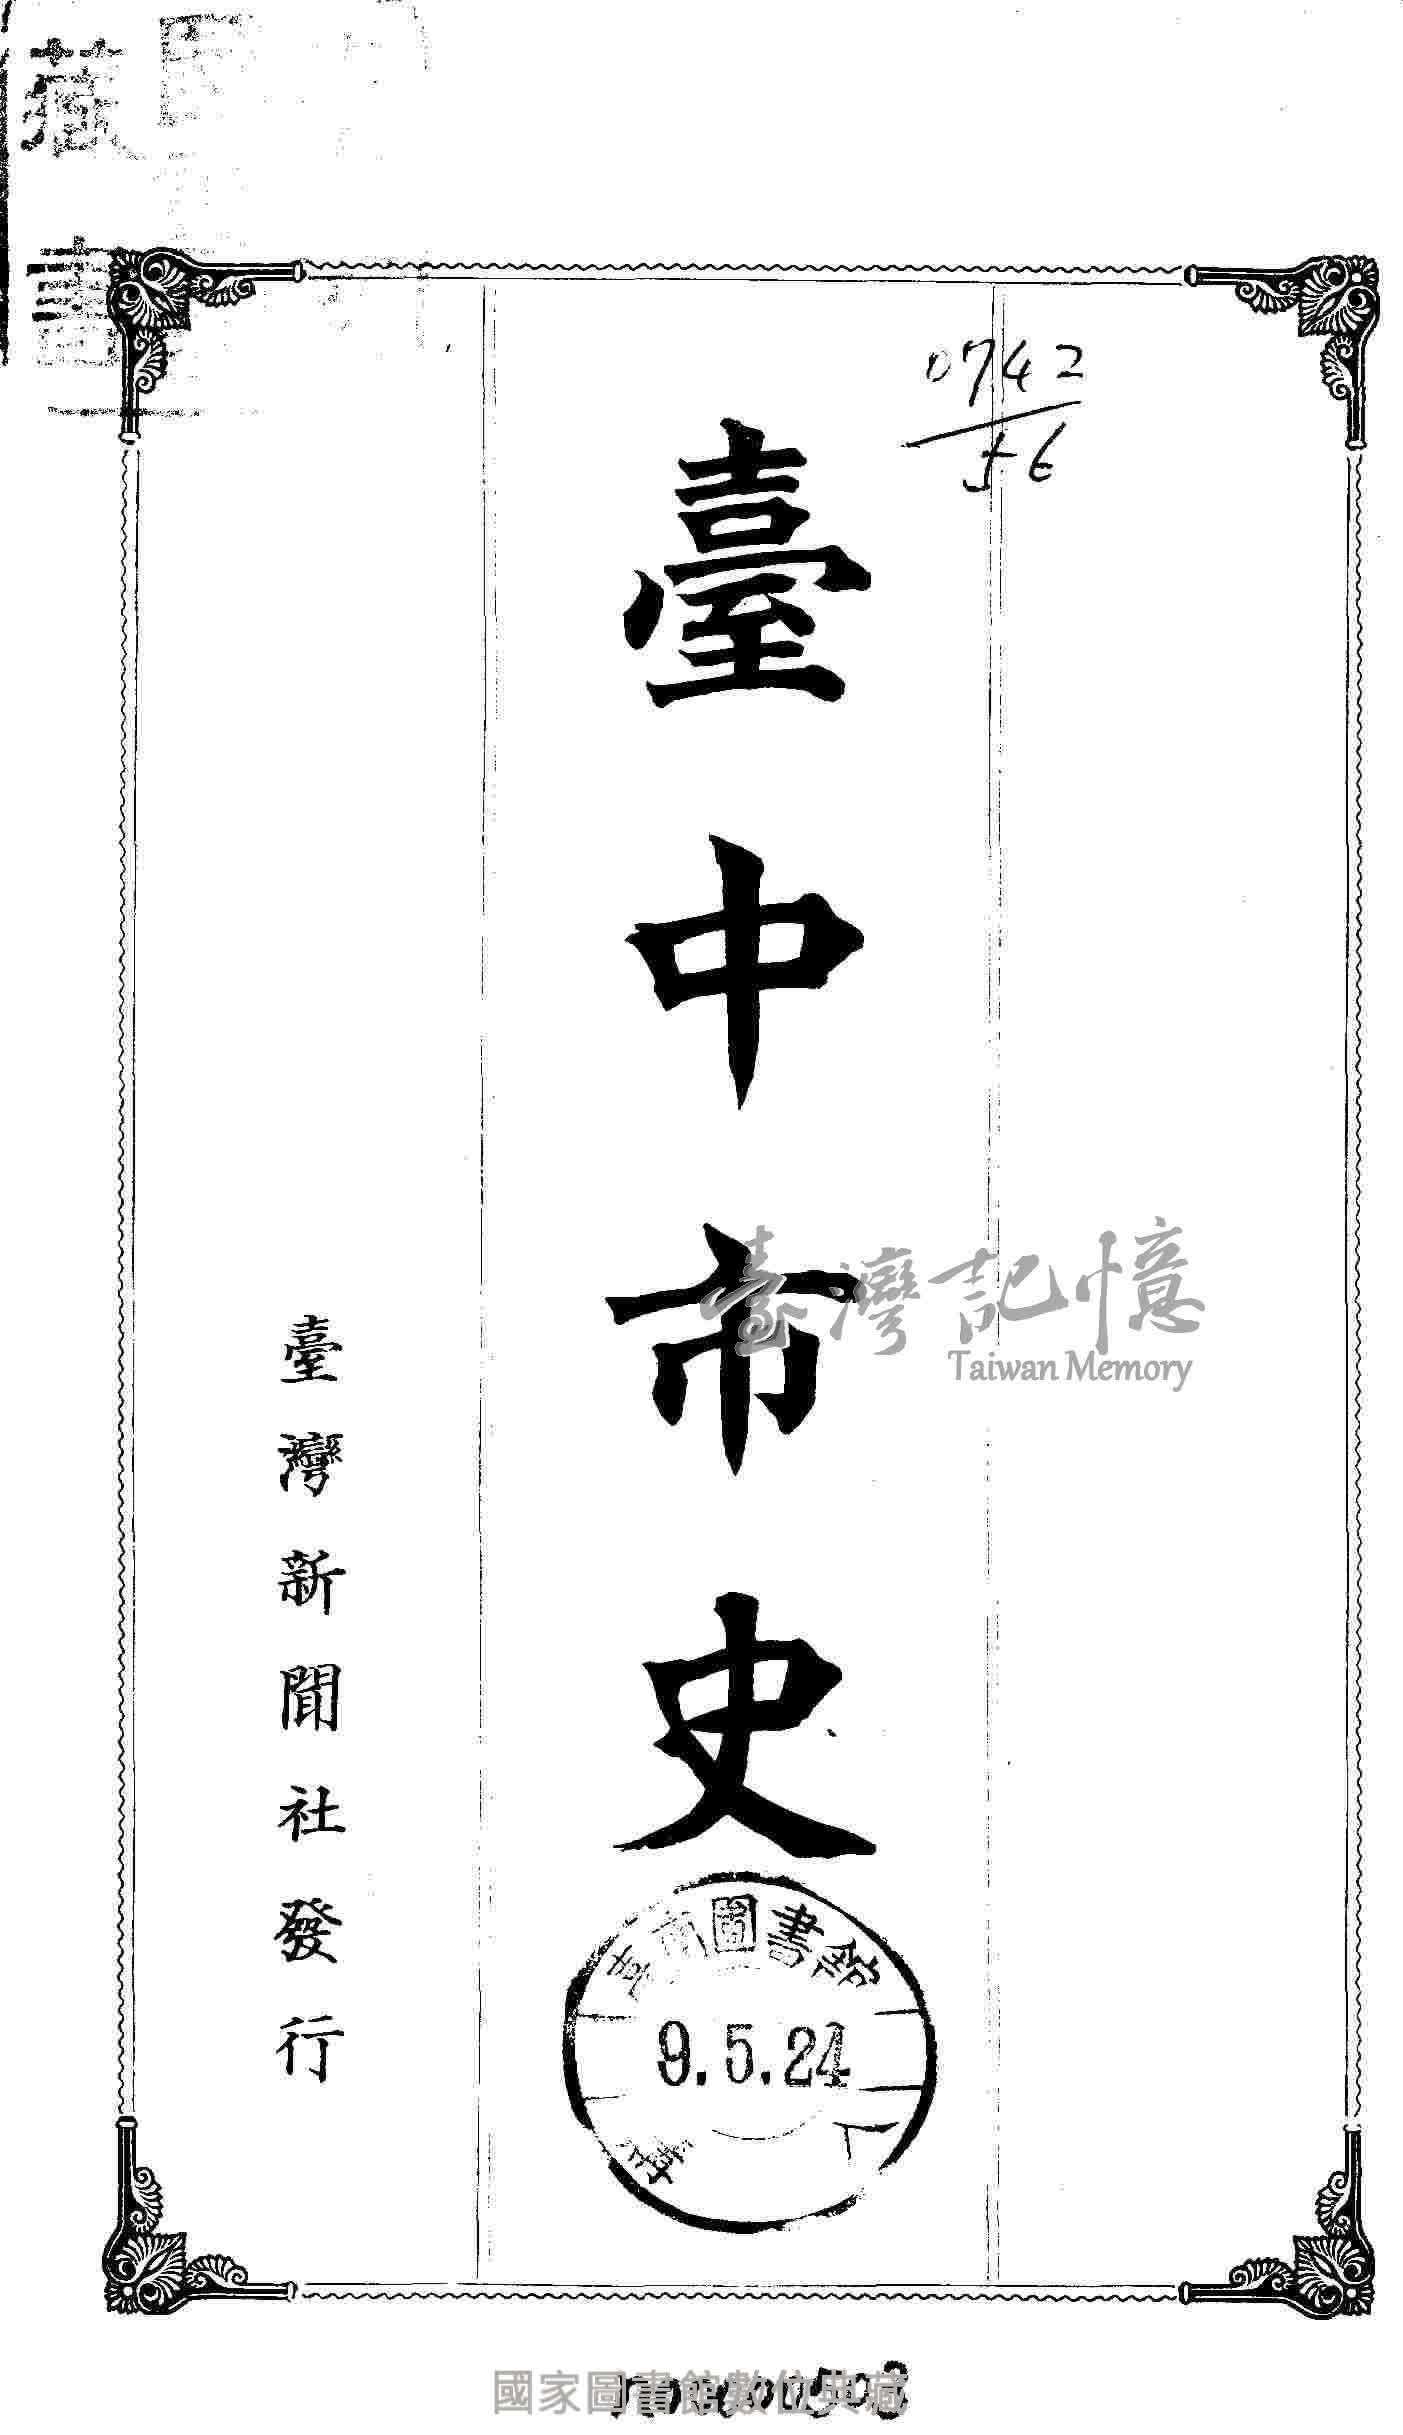 藏
書
0742
56
臺中市史
臺灣新聞社發行
臺灣記憶
Taiwan Memory
臺南圖書館
9.5.24
國家圖書館數位典藏